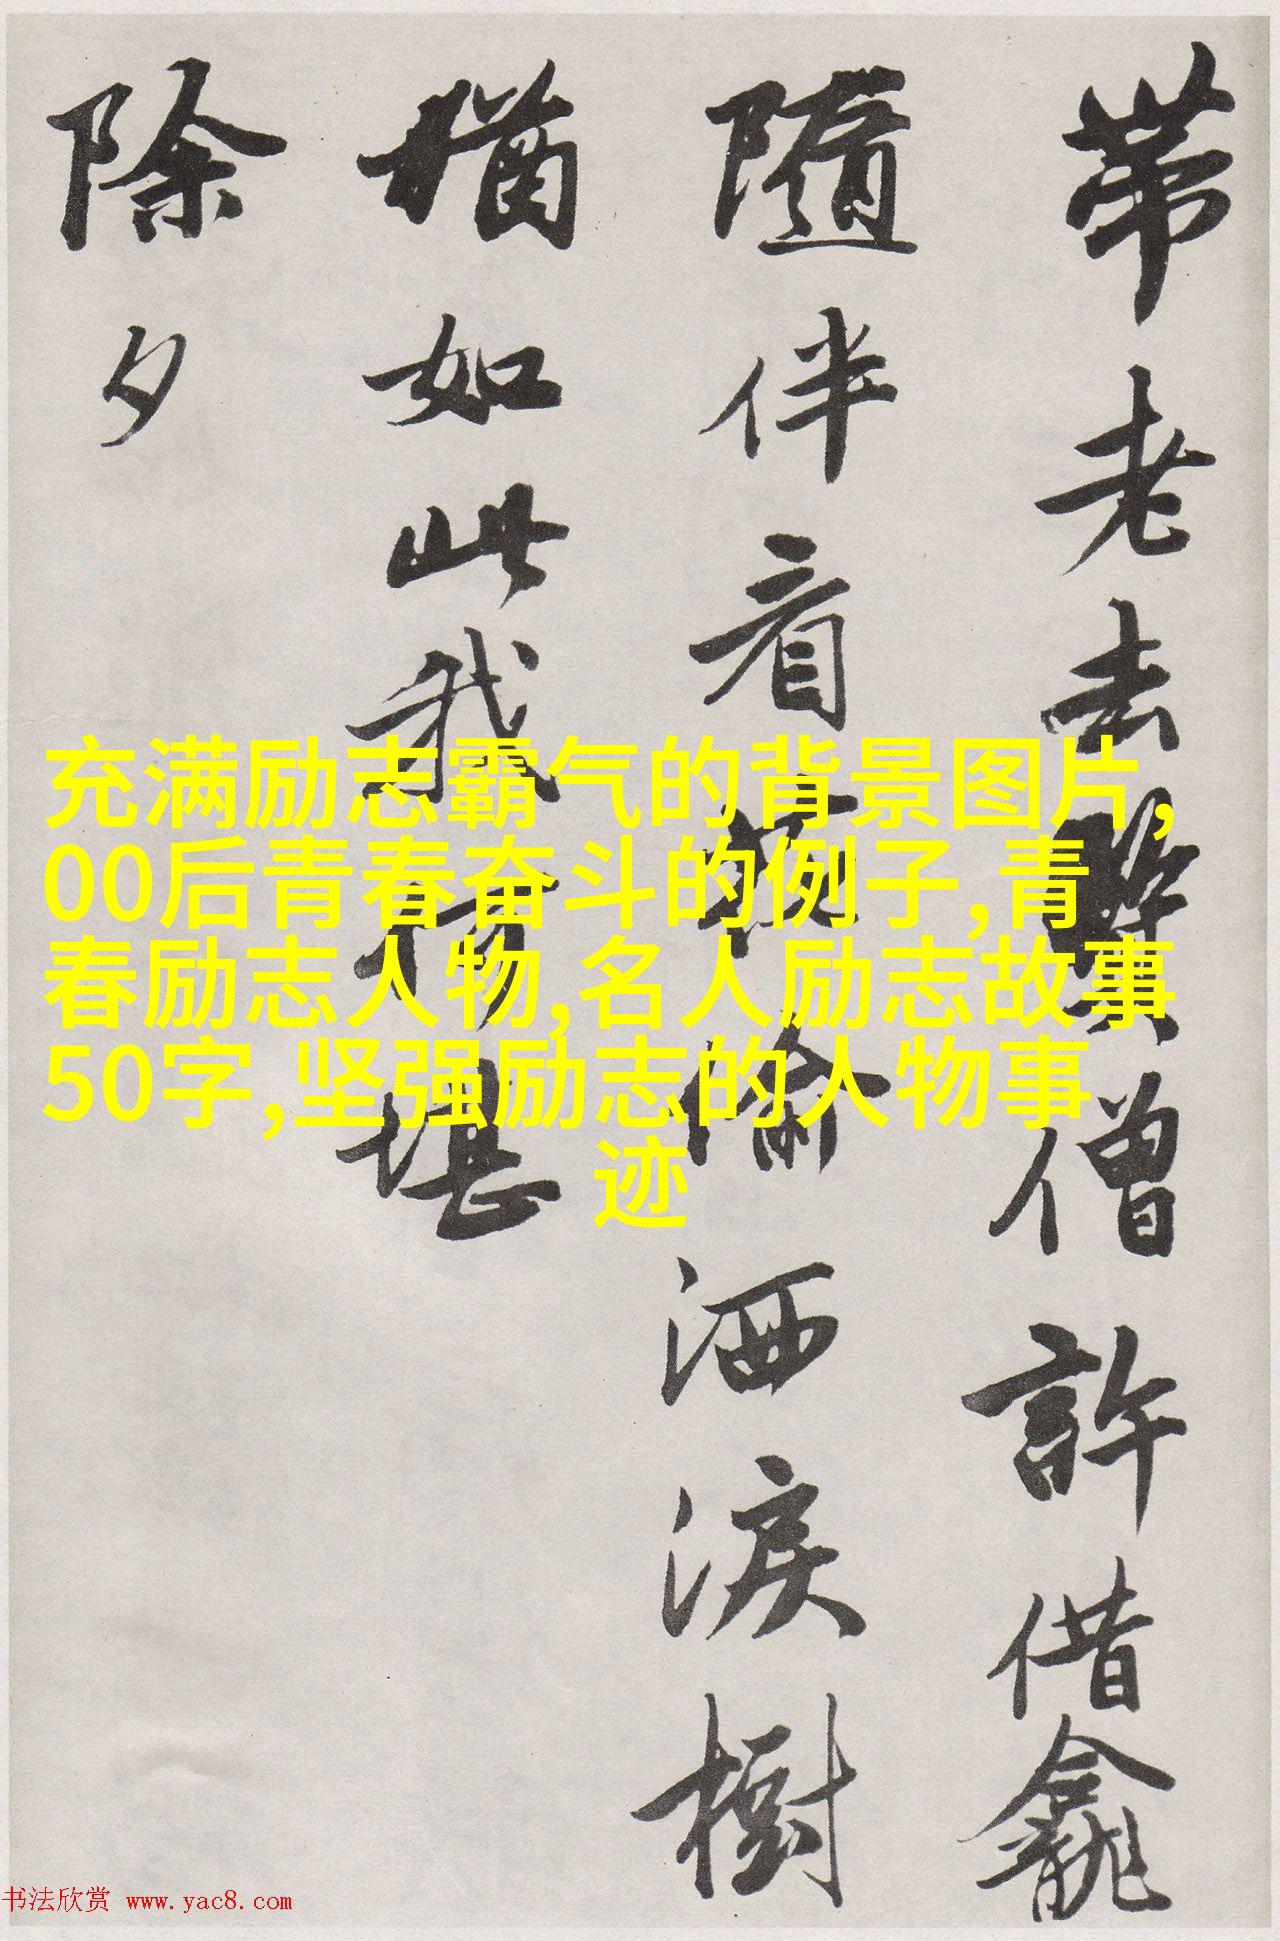 帶老去僧許借龕
隨伴看偷洒淚樹
猶如此我何堪
除夕
充满励志霸气的背景图片,
00后青春奋斗的例子,青
春励志人物,名人励志故事
50字,坚强励志的人物事
迹
书法欣赏 www.yac8.com